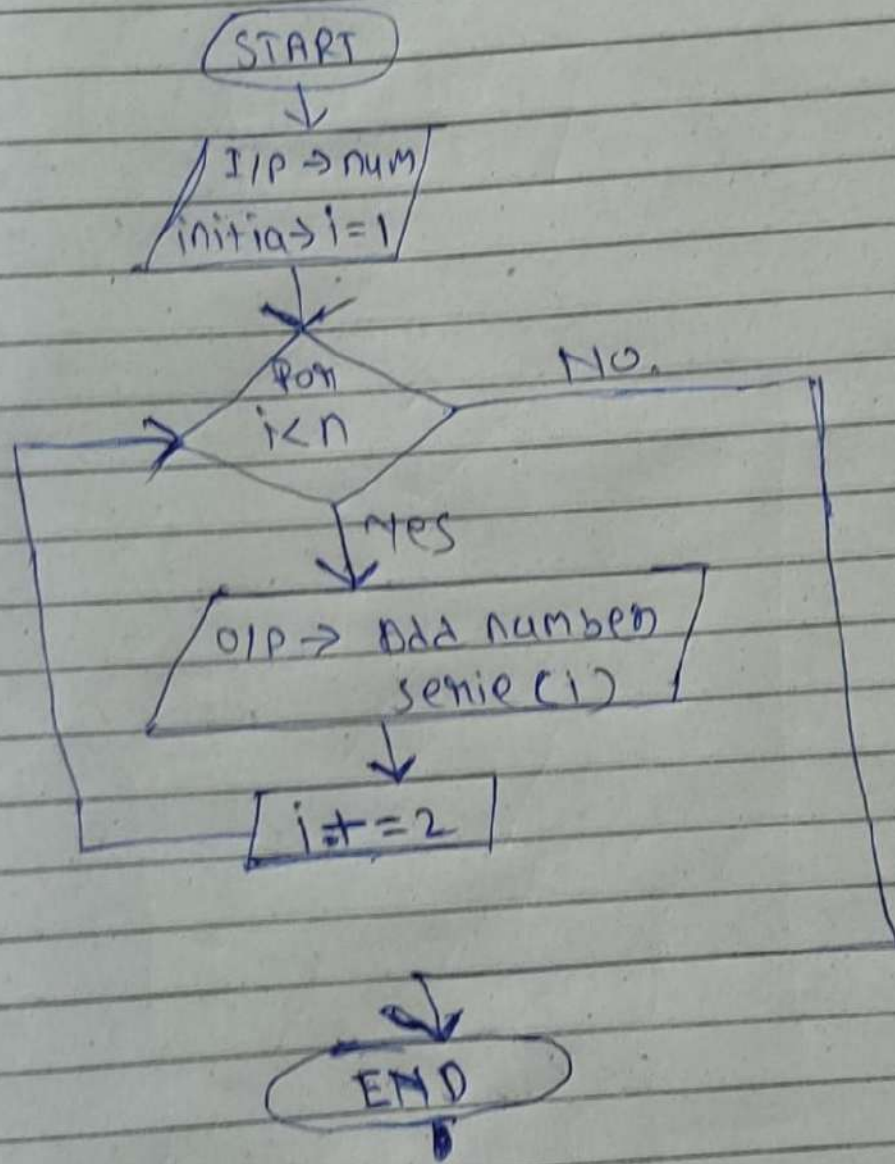 START
I/P → num
initia → i=1
For
i<n
No.
Yes
O/P → Odd number
serie (i)
i+=2
END